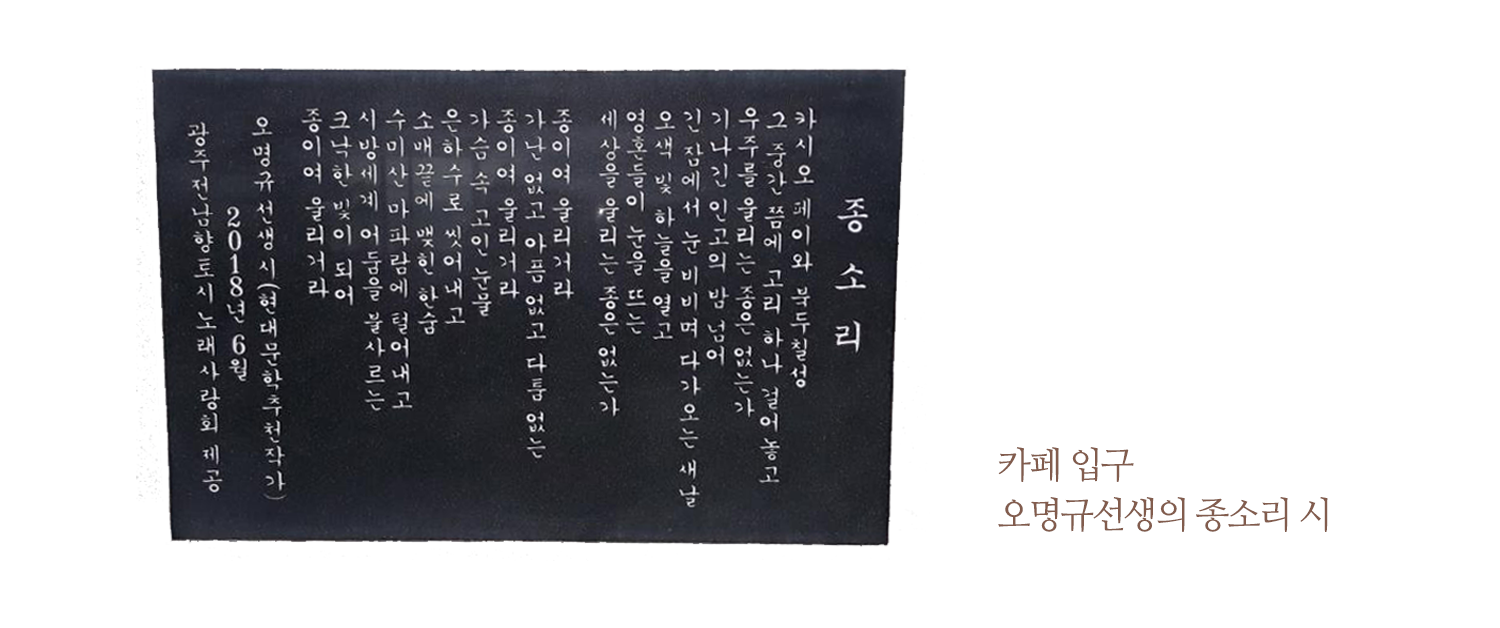 종소리
카시오페이와 북두칠성
그 중간 쯤에 고리 하나 걸어놓고
우주를 울리는 종은 없는가
기나긴 인고의 밤 넘어
긴 잠에서 눈 비비며 다가오는 새날
오색 빛 하늘을 열고
영혼들이 눈을 뜨는
세상을 울리는 종은 없는가
종이여 울리거라
가난 없고 아픔 없고 다툼 없는
종이여 울리거라
가슴 속 고인 눈물
은하수로 씻어내고
소매끝에 맺힌 한숨
수미산 마파람에 털어내고
시방세계 어둠을 불사르는
크낙한 빛이 되어
종이여 울리거라
오명규선생시(현대문학추천작가)
2018년 6월
광주전남향토시노래사랑회 제공
카페 입구
오명규선생의 종소리 시